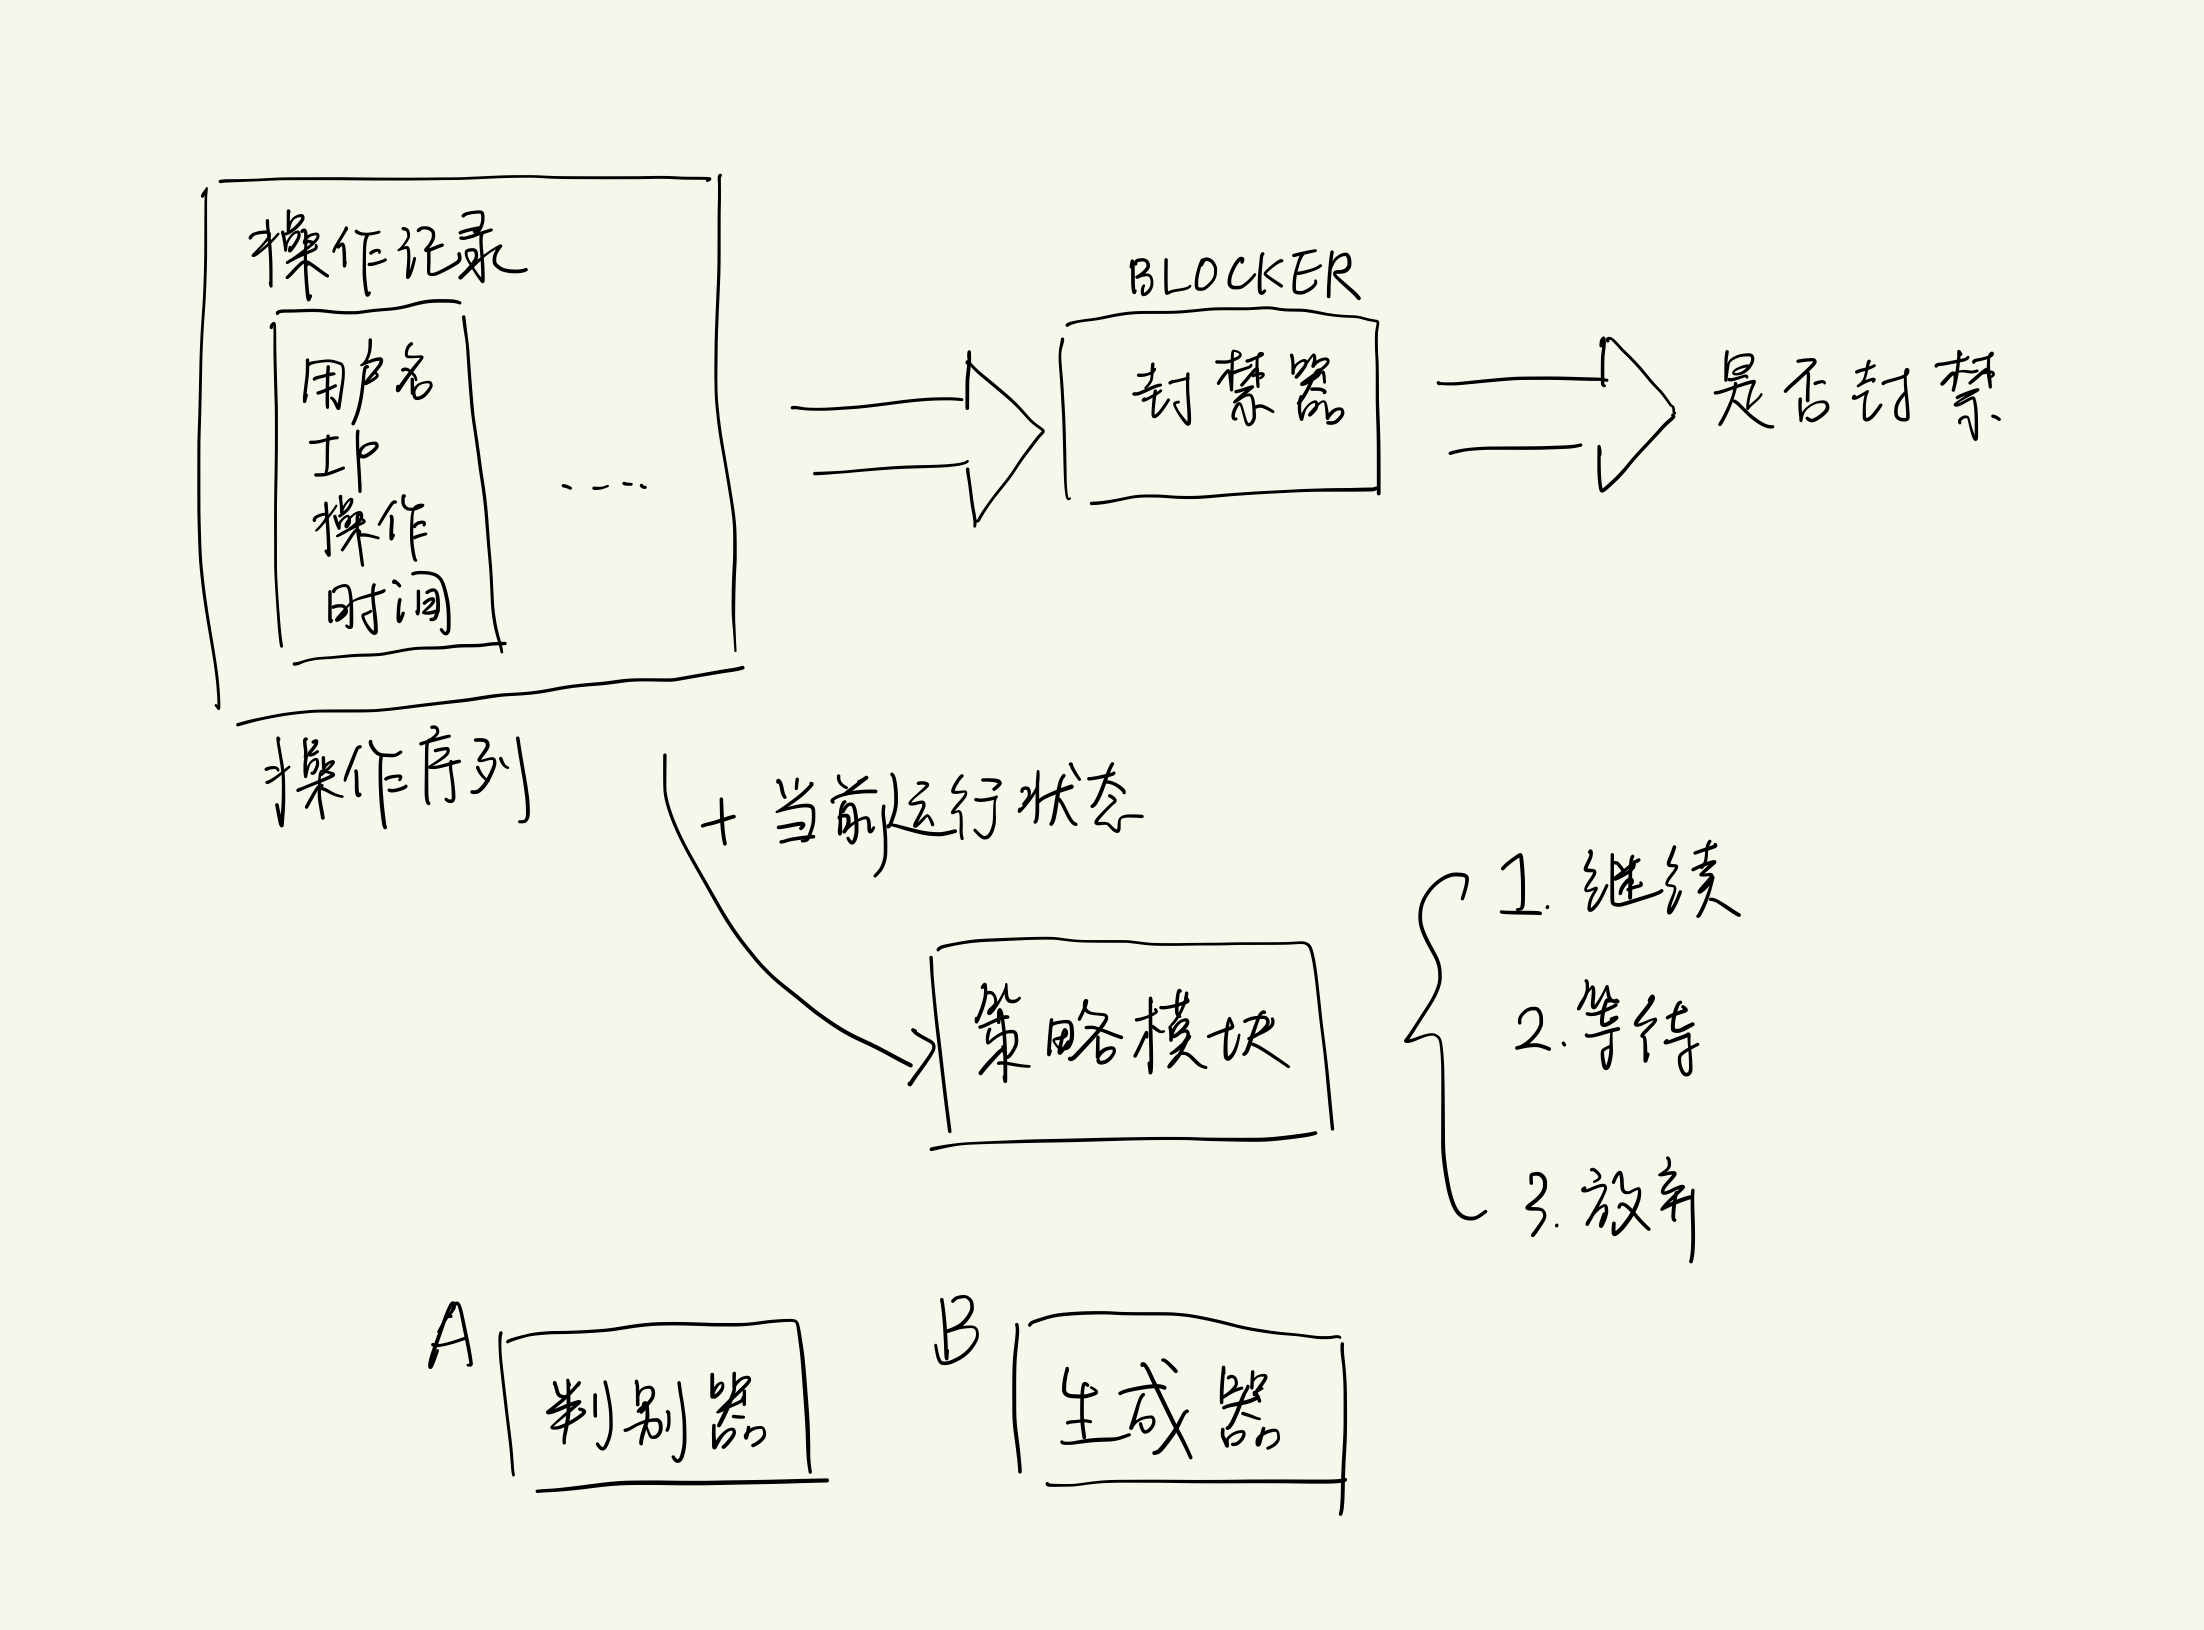 操作记录
用户名
IP
操作
时间
....
操作序列
BLOCKER
封禁器
是否封禁
+ 当前运行状态
策略模块
1. 继续
2. 等待
3. 放弃
A
判别器
B
生成器